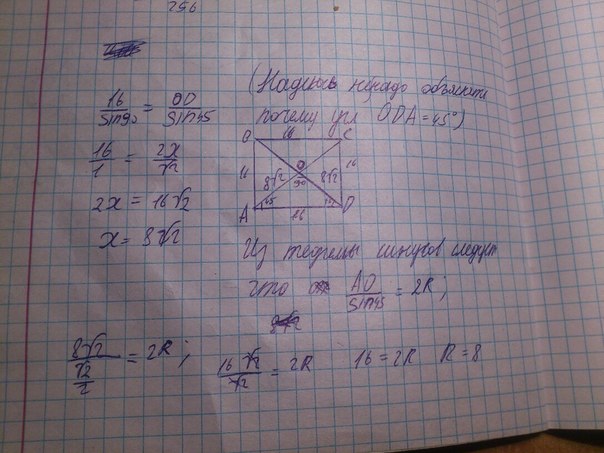 256
16/sin90 = OD/sin45
16/1 = 2x/√2
2x = 16√2
x = 8√2
(Надеюсь ненадо объяснять
почему угл ODA = 45°)
B 16 C
16 O 16
8√2 90 8√2
A 45 45 D
16
Из теоремы синусов следует
что AO/sin45 = 2R;
8√2/(√2/2) = 2R; 16√2/√2 = 2R 16 = 2R R = 8